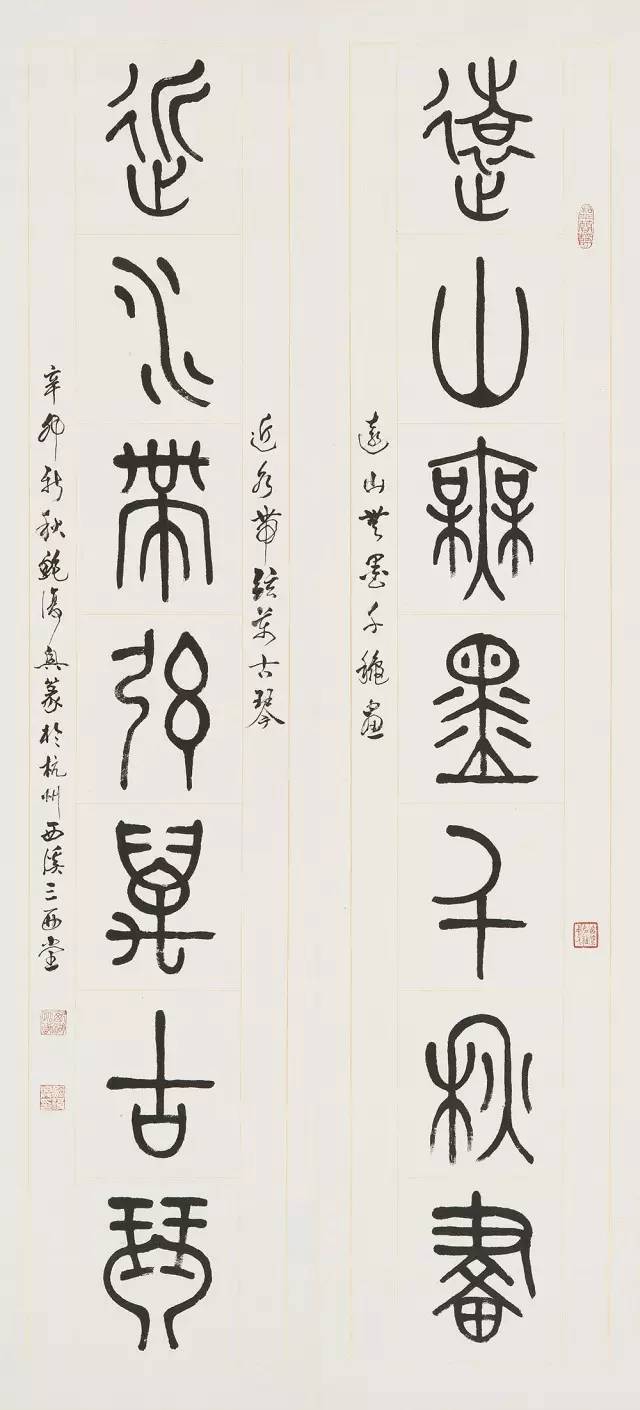 遠山無墨千秋畫
遠山無墨千穐畫
近水帶弦萬古琴
近水帶弦萬古琴
辛卯新秋鮑復興篆於杭州西溪三西堂